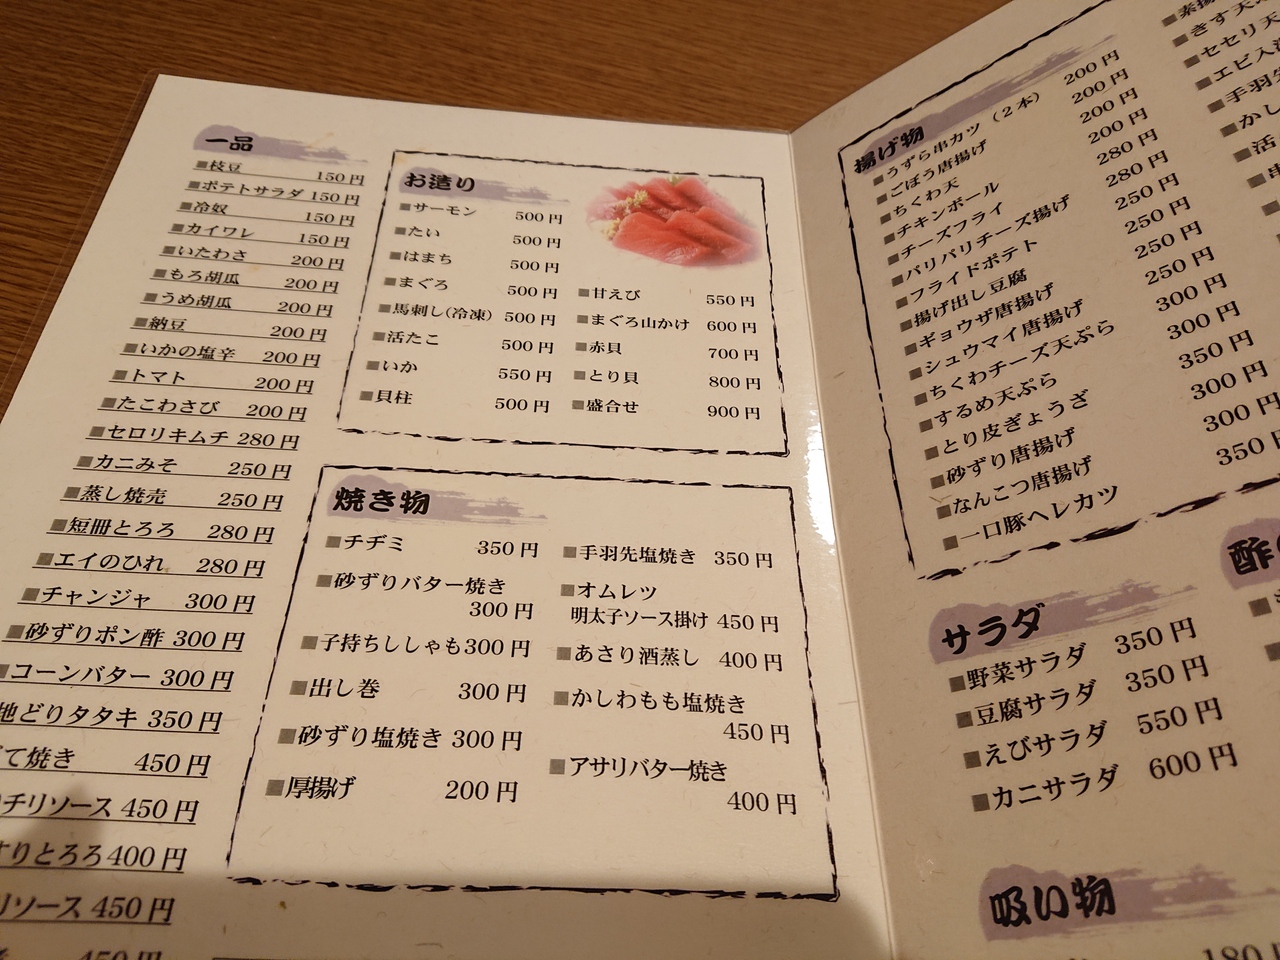 一品
■枝豆 150円
■ポテトサラダ 150円
■冷奴 150円
■カイワレ 150円
■いたわさ 200円
■もろ胡瓜 200円
■うめ胡瓜 200円
■納豆 200円
■いかの塩辛 200円
■トマト 200円
■たこわさび 200円
■セロリキムチ 280円
■カニみそ 250円
■蒸し焼売 250円
■短冊とろろ 280円
■エイのひれ 280円
■チャンジャ 300円
■砂ずりポン酢 300円
■コーンバター 300円
地どりタタキ 350円
て焼き 450円
チリソース 450円
りとろろ 400円
リソース 450円
450円
お造り
■サーモン 500円
■たい 500円
■はまち 500円
■まぐろ 500円
■馬刺し(冷凍) 500円
■活たこ 500円
■いか 550円
■貝柱 500円
■甘えび 550円
■まぐろ山かけ 600円
■赤貝 700円
■とり貝 800円
■盛合せ 900円
焼き物
■チヂミ 350円
■砂ずりバター焼き
300円
■子持ちししゃも 300円
■出し巻 300円
■砂ずり塩焼き 300円
■厚揚げ 200円
■手羽先塩焼き 350円
■オムレツ
明太子ソース掛け 450円
■あさり酒蒸し 400円
■かしわもも塩焼き
450円
■アサリバター焼き
400円
揚げ物
■うずら串カツ(2本) 200円
■ごぼう唐揚げ 200円
■ちくわ天 200円
■チキンボール 200円
■チーズフライ 280円
■パリパリチーズ揚げ 280円
■フライドポテト 250円
■揚げ出し豆腐 250円
■ギョウザ唐揚げ 250円
■シュウマイ唐揚げ 250円
■ちくわチーズ天ぷら 300円
■するめ天ぷら 300円
■とり皮ぎょうざ 350円
■砂ずり唐揚げ 300円
■なんこつ唐揚げ 300円
■一口豚ヘレカツ 350円
サラダ
■野菜サラダ 350円
■豆腐サラダ 350円
■えびサラダ 550円
■カニサラダ 600円
吸い物
180円
■素揚
■きす天
■セセリ天
■エビ入
■手羽先
■かし
■活
■串
酢の